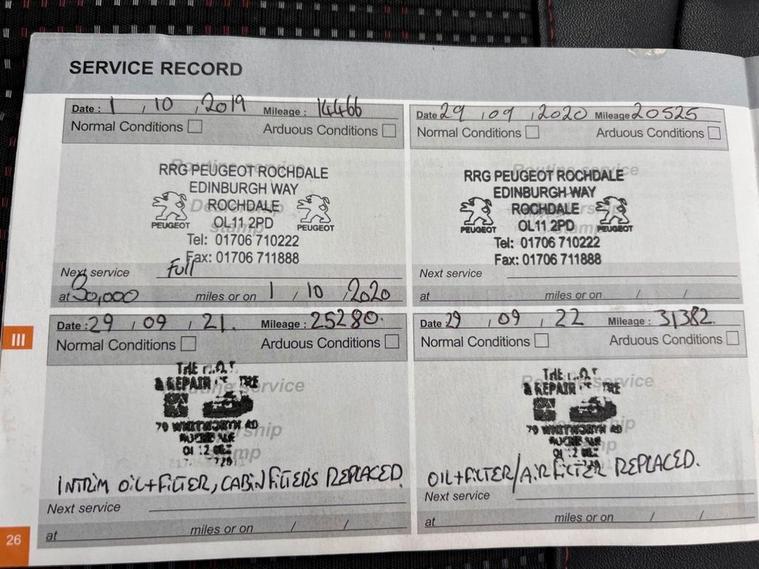 SERVICE RECORD
Date : 1 , 10 , 2019 Mileage : 14466
Normal Conditions Arduous Conditions
RRG PEUGEOT ROCHDALE
EDINBURGH WAY
ROCHDALE
OL11 2PD
PEUGEOT PEUGEOT
Tel: 01706 710222
Fax: 01706 711888
Next service Full
at 30,000 miles or on 1 , 10 , 2020
Date 29 , 09 , 2020 Mileage 20525
Normal Conditions Arduous Conditions
RRG PEUGEOT ROCHDALE
EDINBURGH WAY
ROCHDALE
OL11 2PD
PEUGEOT PEUGEOT
Tel: 01706 710222
Fax: 01706 711888
Next service
at miles or on / /
III
Date : 29 , 09 , 21. Mileage : 25280.
Normal Conditions Arduous Conditions
THE
& REPAIR
79 WHITWORTH RD
INTRIM OIL+FILTER, CABIN FILTERS REPLACED.
Next service
at miles or on / /
Date 29 , 09 , 22 Mileage : 31,382.
Normal Conditions Arduous Conditions
THE
& REPAIR
79 WHITWORTH RD
OIL+FILTER/AIR FILTER REPLACED.
Next service
at miles or on / /
26